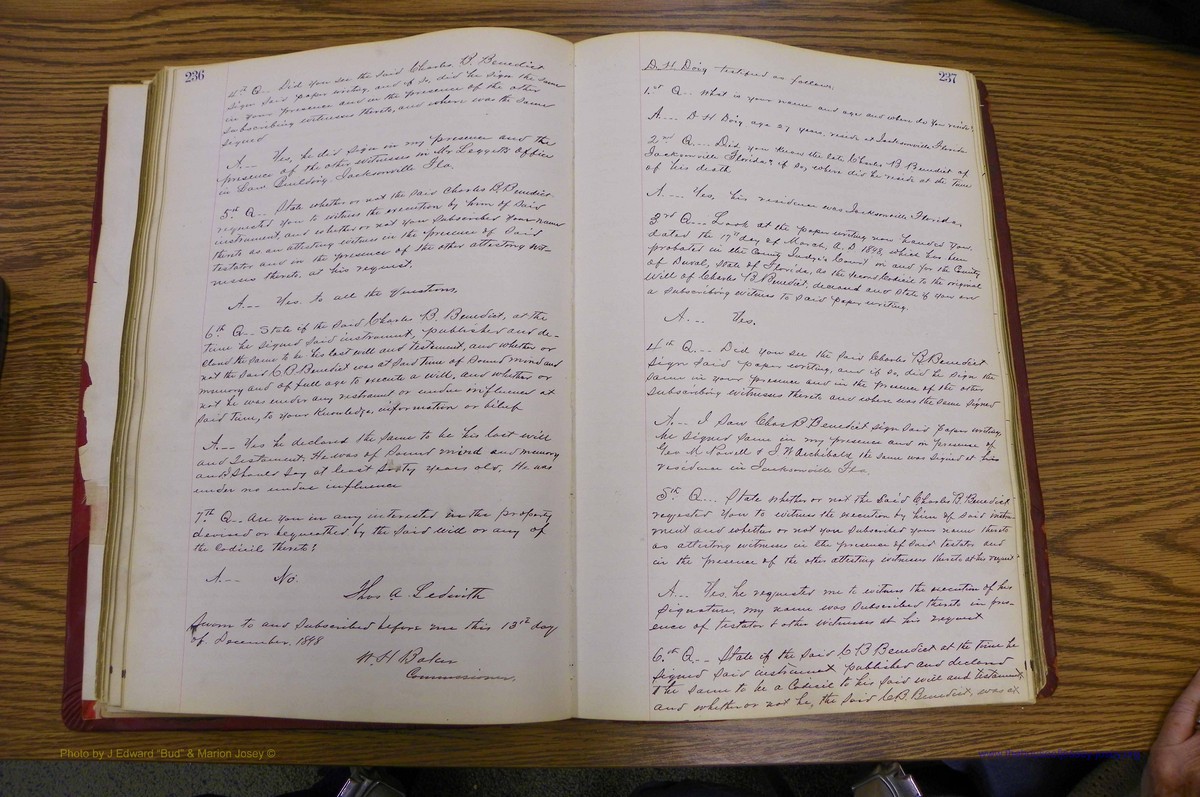 236
4th Q.. Did you see the said Charles B. Benedict
sign said paper writing, and if so, did he sign the same
in your presence and in the presence of the other
subscribing witnesses thereto, and where was the same
signed
A... Yes, he did sign in my presence and the
presence of the other witnesses in Mr Leggetts office
in Law Building Jacksonville Fla.
5th Q... State whether or not the said Charles B. Benedict
requested you to witness the execution by him of said
instrument, and whether or not you subscribed your name
thereto as an attesting witness in the presence of said
testator and in the presence of the other attesting wit-
nesses thereto, at his request.
A... Yes. to all the questions,
6th Q... State if the said Charles B. Benedict, at the
time he signed said instrument, published and de-
clared the same to be his last will and testament, and whether or
not the said C B Benedict was at said time of sound mind and
memory and of full age to execute a will, and whether or
not he was under any restraint or undue influence at
said time, to your knowledge, information or belief
A... Yes he declared the same to be his last will
and testament. He was of sound mind and memory
and I should say at least Sixty years old. He was
under no undue influence
7th Q... Are you in any interested in the property
devised or bequeathed by the said will or any of
the Codicils thereto?
A... No.
Thos A. Ledwith
Sworn to and subscribed before me this 13th day
of December, 1898
W. H Baker
Commissioner,
237
D. H Doig testified as follows,
1st Q... What is your name and age and where do you reside?
A... D H Doig age 27 years, reside at Jacksonville Florida
2nd Q... Did you know the late Charles B. Benedict of
Jacksonville Florida & if so, where did he reside at the time
of his death
A... Yes, his residence was Jacksonville Florida
3rd Q... Look at the paper writing now handed you,
dated the 17th day of March, A. D 1898, which has been
probated in the County Judge's Court in and for the County
of Duval, State of Florida, as the second Codicil to the original
Will of Charles B. Benedict, deceased and state if you are
a subscribing witness to said paper writing.
A... Yes.
4th Q... Did you see the said Charles B Benedict
sign said paper writing, and if so, did he sign the
same in your presence and in the presence of the other
subscribing witnesses thereto and where was the same signed
A... I saw Chas B Benedict sign said paper writing,
he signed same in my presence and in presence of
Geo M Nowell & J W Archibald, the same was signed at his
residence in Jacksonville Fla.
5th Q... State whether or not the said Charles B. Benedict
requested you to witness the execution by him of said instru-
ment and whether or not you subscribed your name thereto
as attesting witness in the presence of said testator and
in the presence of the other attesting witnesses thereto at his request
A... Yes, he requested me to witness the execution of his
signature, my name was subscribed thereto in pres-
ence of testator & other witnesses at his request
6th Q... State if the said C B Benedict at the time he
signed said instrument published and declared
the same to be a Codicil to his said will and testament
and whether or not he, the said C B. Benedict, was at
Photo by J Edward "Bud" & Marion Josey ©